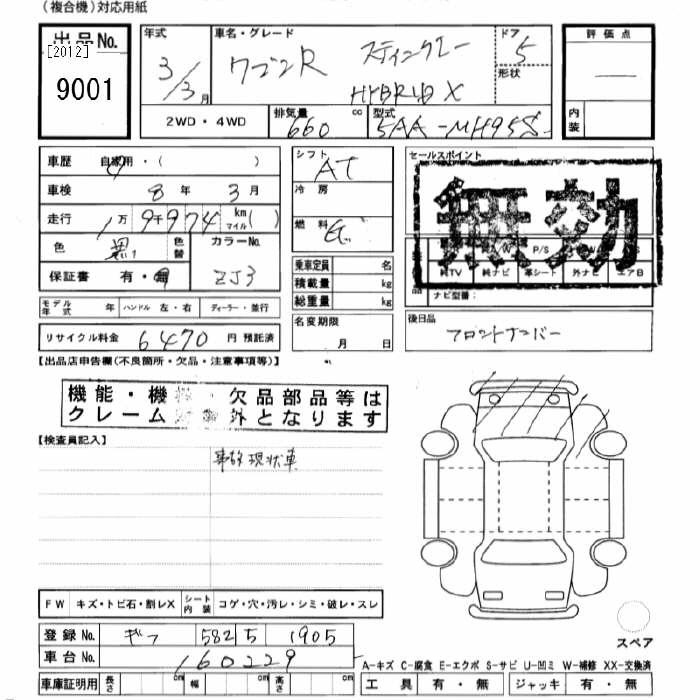 （複合機）対応用紙
出品No.
[2012]
9001
年式
3/3月
車名・グレード
ワゴンR スティングレー
HYBRID X
ドア
5
形状
評価点
内装
2WD・4WD
排気量 660 cc
型式 5AA-MH95S
車歴 自家用・（ ）
車検 8年 3月
走行 1万9千974 km マイル（ ）
色 黒 色替
カラーNo.
ZJ3
保証書 有・無
モデル年式 年 ハンドル 左・右 ディーラー・並行
リサイクル料金 6470 円 預託済
シフト AT
冷房
燃料 G
乗車定員 名
積載量 kg
総重量 kg
名変期限
月 日
セールスポイント
無効
P/S
純TV 純ナビ 革シート 外ナビ エアB
ナビ型番：
後日品
フロントナンバー
【出品店申告欄（不良箇所・欠品・注意事項等）】
機能・機 ・欠品部品等は
クレーム 対象外となります
【検査員記入】
事故現状車
FW キズ・トビ石・割レX シート内装 コゲ・穴・汚レ・シミ・破レ・スレ
登録No. ギフ 582 5 1905
車台No. 160229
車庫証明用 長さ cm 幅 cm 高さ cm
スペア
A-キズ C-腐食 E-エクボ S-サビ U-凹ミ W-補修 XX-交換済
工具 有・無 ジャッキ 有・無